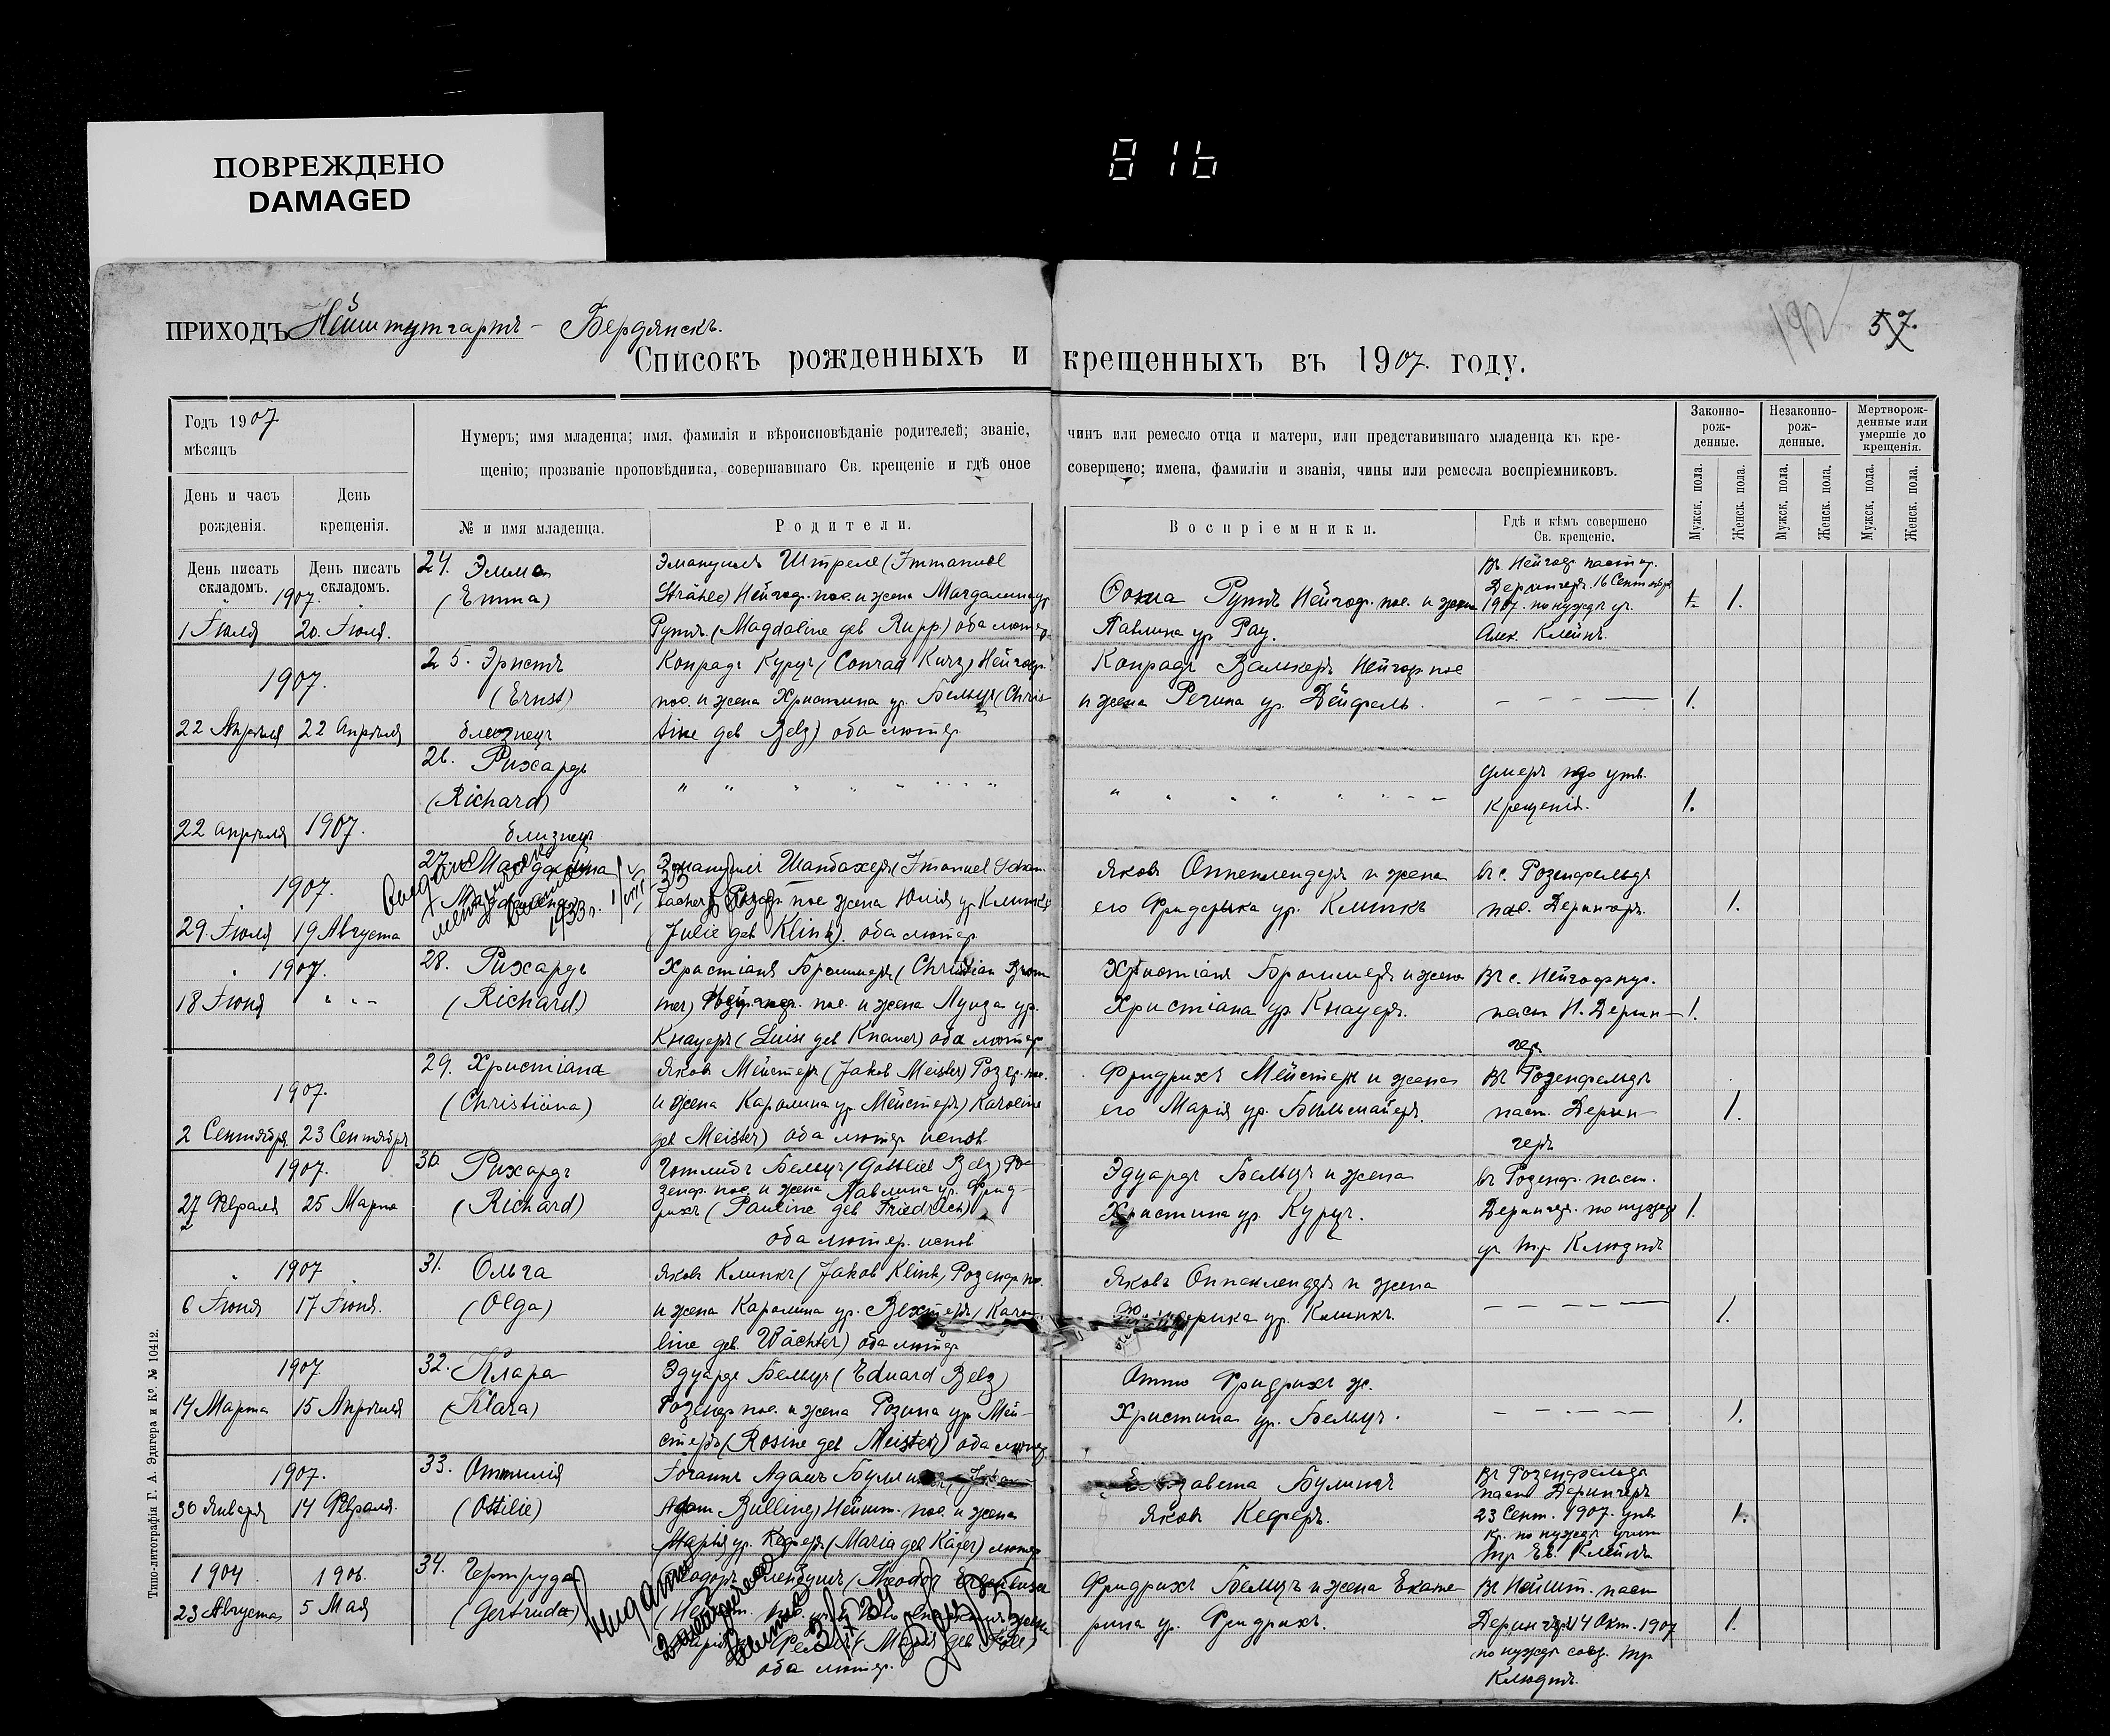 ПОВРЕЖДЕНО
DAMAGED
816
192
57.
ПРИХОДЪ Нейштутгартъ - Бердянскъ.
Списокъ рожденныхъ и крещенныхъ въ 1907. году.
Годъ 1907
мѣсяцъ
День и часъ рожденія.
День крещенія.
Нумеръ; имя младенца; имя, фамилія и вѣроисповѣданіе родителей; званіе, чинъ или ремесло отца и матери, или представившаго младенца къ кре-
щенію; прозваніе проповѣдника, совершавшаго Св. крещеніе и гдѣ оное совершено; имена, фамиліи и званія, чины или ремесла воспріемниковъ.
№ и имя младенца.
Родители.
Воспріемники.
Гдѣ и кѣмъ совершено
Св. крещеніе.
Законно-
рож-
денные.
Незаконно-
рож-
денные.
Мертворож-
денные или
умершіе до
крещенія.
Мужск. пола.
Женск. пола.
Мужск. пола.
Женск. пола.
Мужск. пола.
Женск. пола.
День писать
складомъ.
День писать
складомъ.
1907.
1 Іюля
20. Іюля.
24. Эмма
(Emma)
Эмануилъ Штреле (Immanuel
Strähle) Нейгоф. пос. и жена Магдалина ур.
Руппъ (Magdaline geb Rupp) оба лютер.
Руппъ Нейгоф. пос. и жена
Павлина ур. Рау.
Въ Нейгоф. пастор.
Дерингеръ. 16 Сентября
1907. по нуждѣ уч.
Алек. Клейнъ.
1.
1907.
22 Апрѣля
22 Апрѣля
25. Эрнстъ
(Ernst)
близнецъ
Конрадъ Курцъ (Conrad Kurz) Нейгоф.
пос. и жена Христина ур. Бельцъ (Chris-
tine geb Belz) оба лютер.
Конрадъ Валькеръ Нейгоф. пос
и жена Регина ур. Дейфель.
1.
22 Апрѣля
1907.
26. Рихардъ
(Richard)
близнецъ
умеръ до утв.
крещенія.
1.
1907.
29. Іюля
19 Августа
27. Магдалина
1933 г.
Эмануилъ Шанбахеръ (Imanuel Scham-
bacher) Розенф. пос жена Юлія ур. Клинкъ
(Julie geb Klink). оба лютер.
Яковъ Оппенлендеръ и жена
его Фридерика ур. Клинкъ
въ с. Розенфельдъ
пас. Дерингеръ.
1.
1907.
18 Іюня
28. Рихардъ
(Richard)
Христіанъ Броммеръ (Christian Brom
mer) Нейгоф. пос. и жена Луиза ур.
Кнауеръ (Luise geb Knauer) оба лютер
Христіанъ Броммеръ и жена
Христіана ур Кнауеръ.
Въ с. Нейгофнур.
паст. Н. Дерин-
геръ
1.
1907.
2 Сентября.
23 Сентября
29. Христіана
(Christiana)
Яковъ Мейстеръ (Jakob Meister) Роз. ф. пос.
и жена Каролина ур. Мейстеръ) Karoline
geb Meister) оба лютер. испов.
Фридрихъ Мейстеръ и жена
его Марія ур. Бильмайеръ.
Въ Розенфельдъ
паст. Дерин-
геръ
1.
1907.
27 Февраля
25 Марта
30. Рихардъ
(Richard)
Готлибъ Бельцъ (Gottlieb Belz) Ро-
зенф. пос. и жена Павлина ур. Фрид-
рихъ (Pauline geb Friedrich)
оба лютер. испов
Эдуардъ Бельцъ и жена
Христина ур. Курцъ.
въ Розенф. паст.
Дерингеръ. по нуждѣ
1.
1907
6 Іюня
17 Іюня.
31. Ольга
(Olga)
Яковъ Клинкъ (Jakob Klink) Розенф. пос.
и жена Каролина ур. Вехтеръ (Karo-
line geb. Wächter) оба лютер.
Яковъ Оппенлендеръ и жена
Фридерика ур. Клинкъ.
1.
1907
14 Марта
15 Апрѣля
32. Клара
(Klara)
Эдуардъ Бельцъ (Eduard Belz)
Розенф. пос. и жена Розина ур Мей-
стеръ (Rosine geb Meister) оба лютер
Отто Фридрихъ ж.
Христина ур. Бельцъ.
1.
1907.
30 Января
14 Февраля.
33. Оттилія
(Ottilie)
Іоганнъ Адамъ
Adam Bulling) Нейшт. пос. и жена
Марья ур. Кеферъ (Maria geb Käfer) лютер
Елизавета Булингъ
Яковъ Кеферъ.
Въ Розенфельдъ
паст Дерингеръ
23 Сент. 1907. утв
кр. по нуждѣ учит
Клейнъ
1.
1904.
1906.
23 Августа
5 Мая
34. Гертруда
(Gertruda)
Теодоръ (Theodor
оба лютер.
Фридрихъ Бельцъ и жена Екате-
рина ур. Фридрихъ.
Въ Нейшт. паст
Дерингеръ 14 Окт. 1907
по нуждѣ
1.
Типо-литографія Г. А. Эдигера и Ко. № 10412.